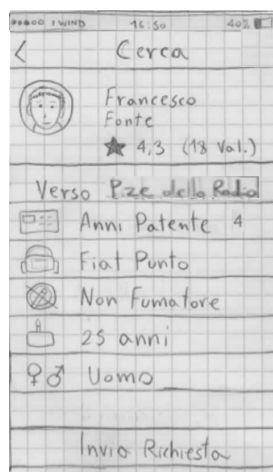 I WIND 16:50 40%
Cerca
Francesco
Fonte
4,3 (18 Val.)
Verso P.ze della Radio
Anni Patente 4
Fiat Punto
Non Fumatore
25 anni
Uomo
Invia Richiesta